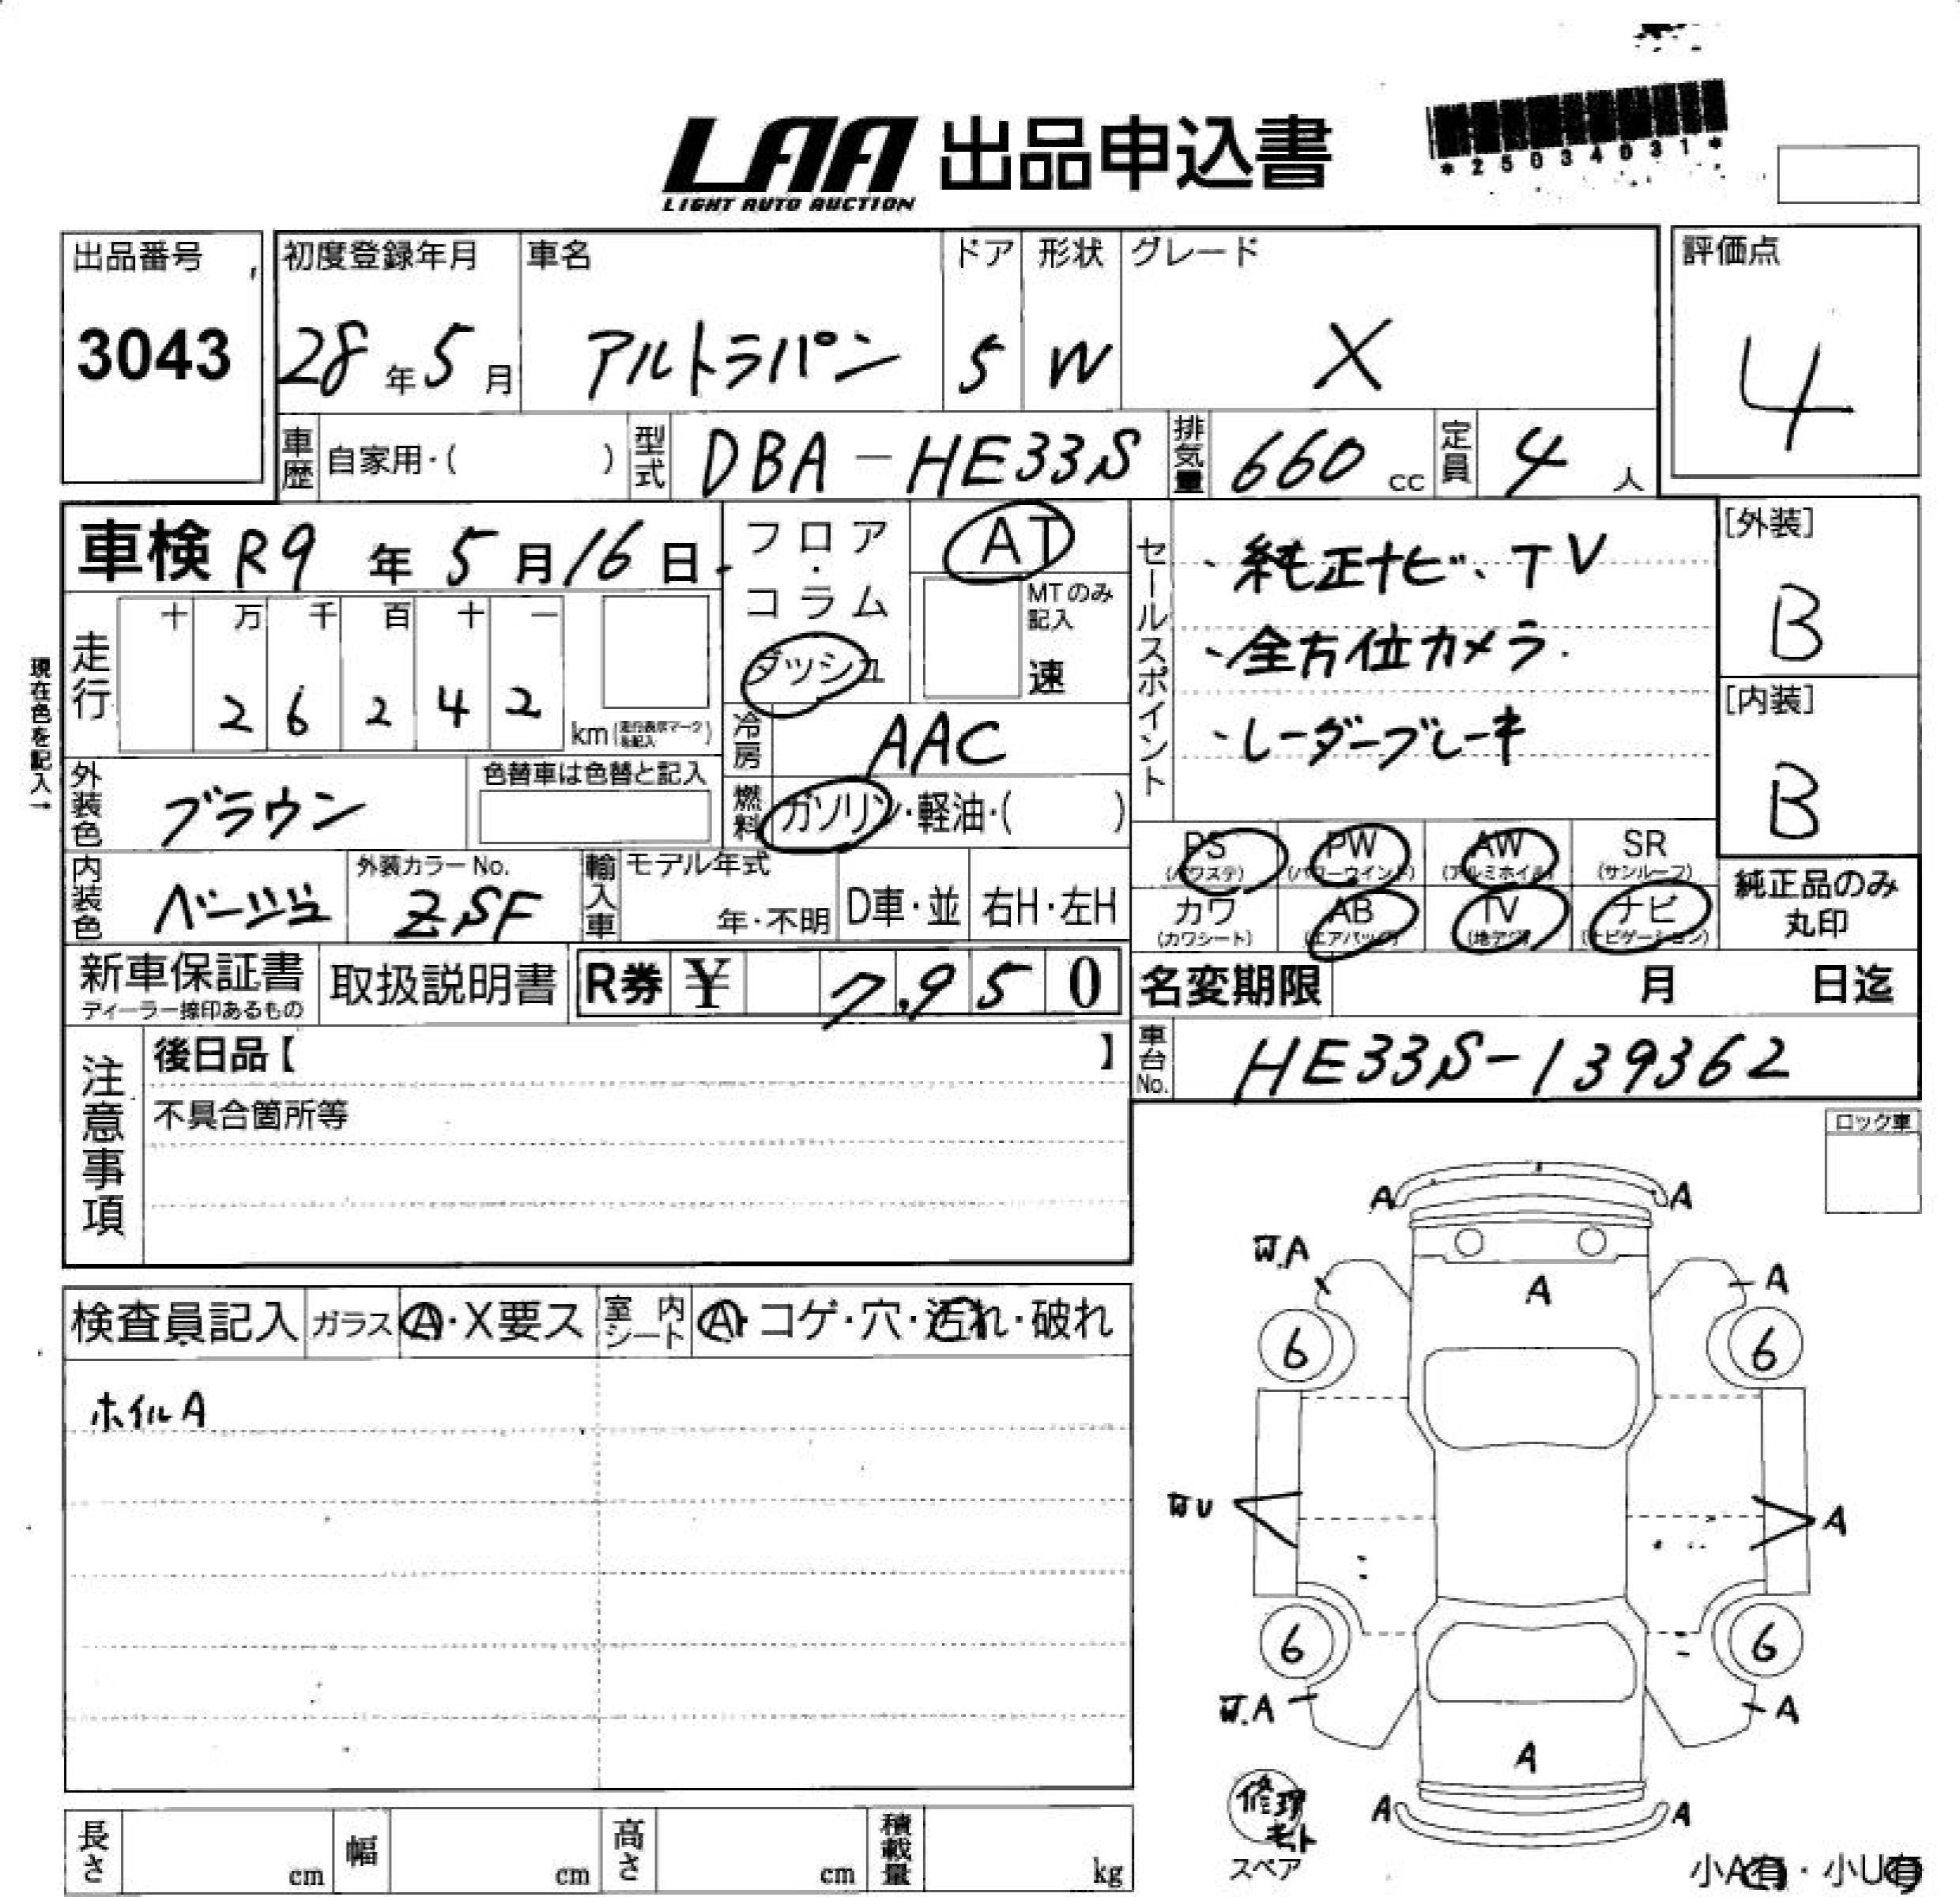 LAA 出品申込書
LIGHT AUTO AUCTION
*25034031*
出品番号
3043
初度登録年月
28年5月
車名
アルトラパン
ドア
5
形状
W
グレード
X
評価点
4
車歴 自家用・( )
型式 DBA-HE33S
排気量 660 cc
定員 4 人
車検 R9年5月16日
フロア・コラム
ダッシュ
AT
MTのみ記入
速
セールスポイント
・純正ナビ、TV
・全方位カメラ.
・レーダーブレーキ
[外装]
B
[内装]
B
現在色を記入→
走行
十 万 千 百 十 一
2 6 2 4 2
km(走行表示マークを記入)
冷房 AAC
外装色 ブラウン
色替車は色替と記入
燃料 ガソリン・軽油・( )
PS (パワステ)
PW (パワーウインド)
AW (アルミホイル)
SR (サンルーフ)
カワ (カワシート)
AB (エアバッグ)
TV (地デジ)
ナビ (ナビゲーション)
純正品のみ
丸印
内装色 ベージュ
外装カラーNo.
ZSF
輸入車 モデル年式
年・不明
D車・並
右H・左H
新車保証書
ディーラー捺印あるもの
取扱説明書
R券 ¥ 7,950
名変期限 月 日迄
注意事項
後日品【 】
不具合箇所等
車台No. HE33S-139362
ロック車
検査員記入 ガラス A・X要ス
室内シート A・コゲ・穴・汚れ・破れ
ホイルA
A A
W.A A
A
6 6
WU A
6 6
W.A A
A
A A
修理キット
スペア
小A有・小U有
長さ cm
幅 cm
高さ cm
積載量 kg